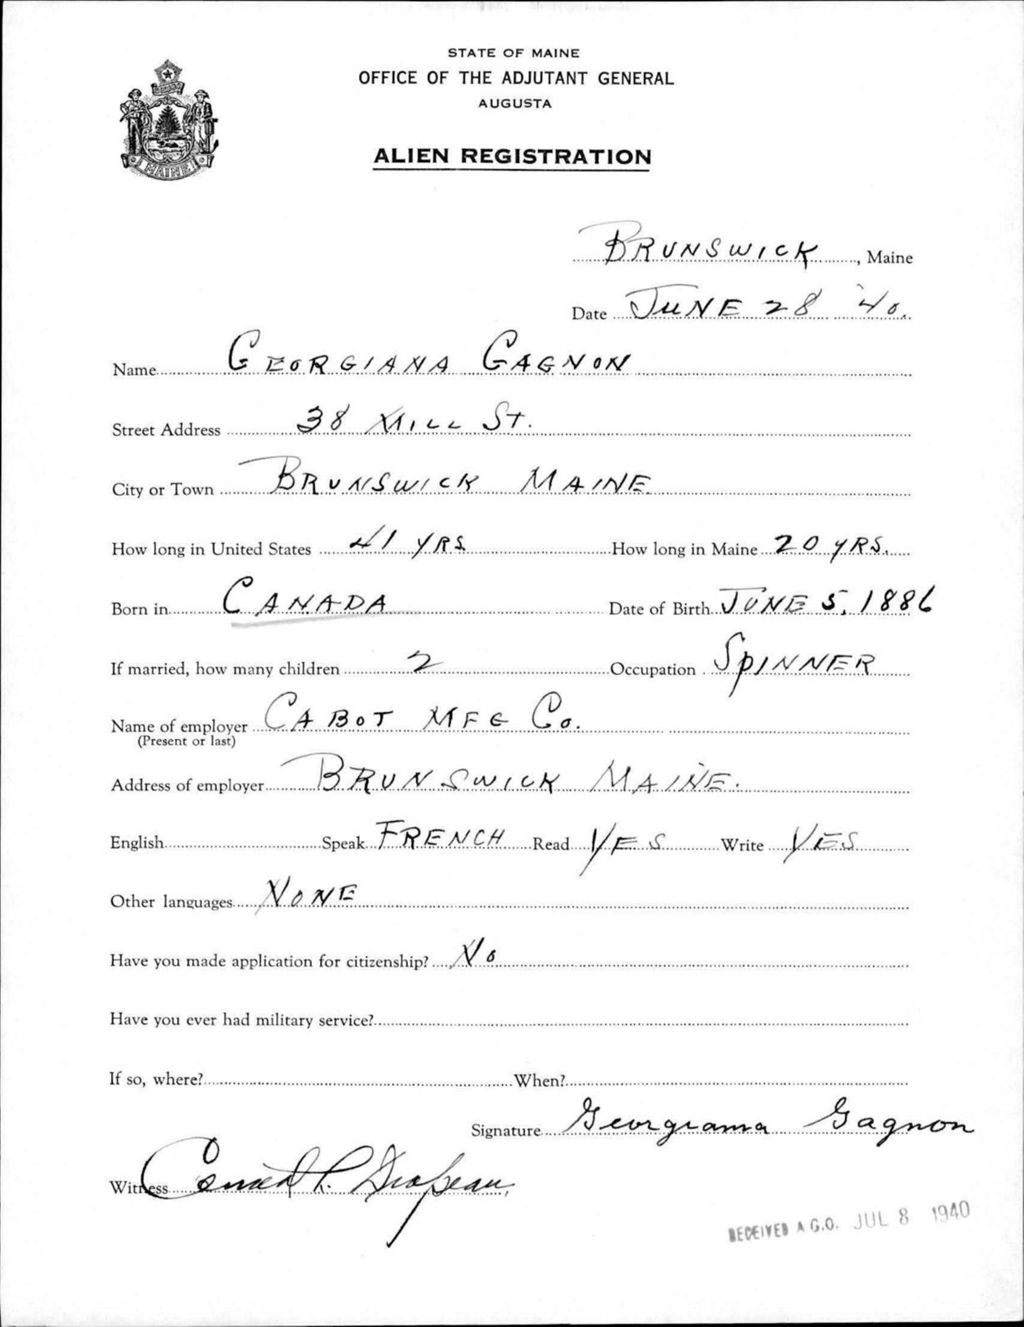 STATE OF MAINE
OFFICE OF THE ADJUTANT GENERAL
AUGUSTA
ALIEN REGISTRATION
MAINE
BRUNSWICK, Maine
Date JUNE 28 '40.
Name GEORGIANA GAGNON
Street Address 38 MILL ST.
City or Town BRUNSWICK MAINE
How long in United States 41 YRS. How long in Maine 20 YRS.
Born in CANADA Date of Birth JUNE 5, 1886
If married, how many children 2 Occupation SPINNER
Name of employer CABOT MFG CO.
(Present or last)
Address of employer BRUNSWICK MAINE.
English Speak FRENCH Read YES Write YES
Other languages NONE
Have you made application for citizenship? NO
Have you ever had military service?
If so, where? When?
Signature Georgiana Gagnon
Witness Conrad P. Drapeau,
RECEIVED A.G.O. JUL 8 1940